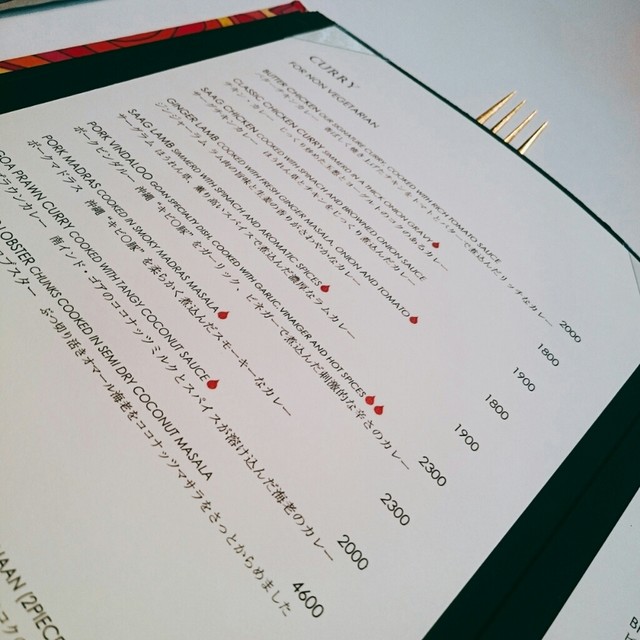 CURRY
FOR NON VEGETARIAN
BUTTER CHICKEN OUR SIGNATURE CURRY, COOKED WITH RICH TOMATO SAUCE 2000
CLASSIC CHICKEN CURRY SIMMERED IN A THICK ONION GRAVY 1800
SAAG CHICKEN COOKED WITH SPINACH AND BROWNED ONION SAUCE 1900
GINGER LAMB COOKED WITH FRESH GINGER MASALA, ONION AND TOMATO 1800
SAAG LAMB SIMMERED WITH SPINACH AND AROMATIC SPICES 1900
サーグラム ほうれん草、薫り高いスパイスで煮込んだ濃厚なラムカレー
PORK VINDALOO GOA'S SPECIALTY DISH, COOKED WITH GARLIC, VINAGER AND HOT SPICES 2300
ポークビンダルー 沖縄“キビ〇豚”をガーリック、ビネガーで煮込んだ刺激的な辛さのカレー
PORK MADRAS COOKED IN SMOKY MADRAS MASALA 2300
ポークマドラス 沖縄“キビ〇豚”を柔らかく煮込んだスモーキーなカレー
GOA PRAWN CURRY COOKED WITH TANGY COCONUT SAUCE 2000
プラウンカレー 南インド・ゴアのココナッツミルクとスパイスが溶け込んだ海老のカレー
LOBSTER CHUNKS COOKED IN SEMI DRY COCONUT MASALA 4600
ロブスター ぶつ切り活きオマール海老をココナッツマサラをさっとからめました
NAAN (2PIEC